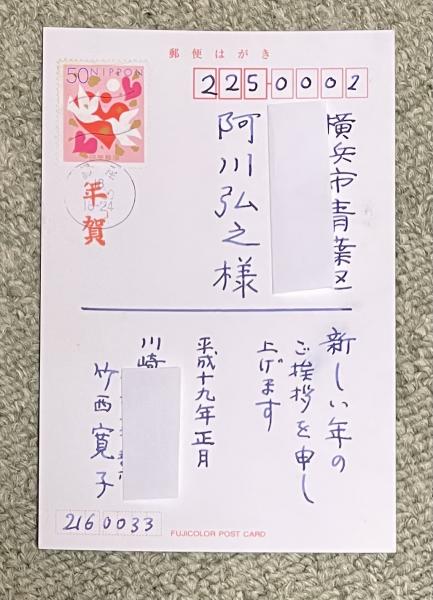 郵便はがき
50 NIPPON
年賀
2250002
横浜市青葉区
阿川弘之様
新しい年の
ご挨拶を申し
上げます
平成十九年正月
川崎
竹西寛子
2160033
FUJICOLOR POST CARD